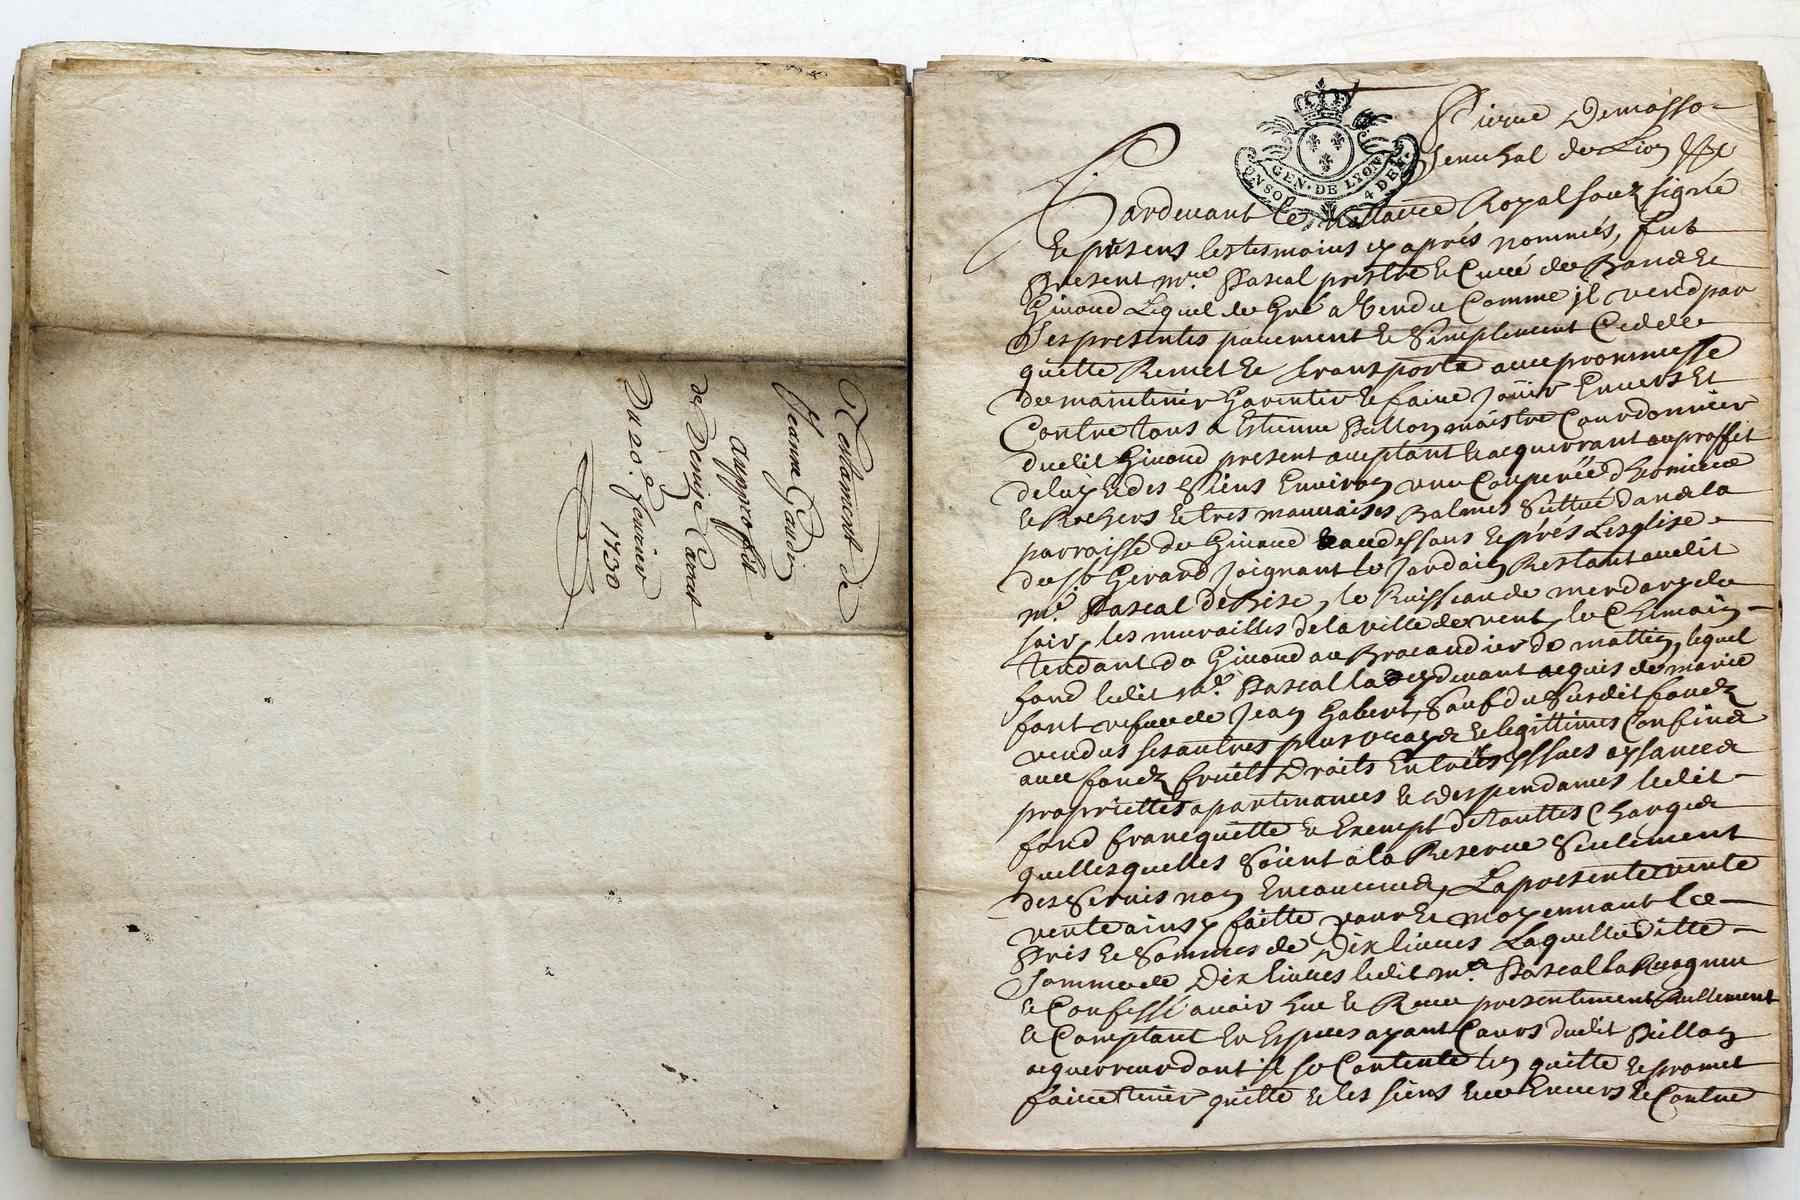 Testament de
Jeanne Gaudin
au proffit
de Denise Carret
Du 20.e feuvrier
1730
GEN·DE LYON
4 DEN.
Pierre Demasso
Senechal de Lion &c
Pardevant le Nottaire Royal souz signé
Et presens les tesmoins cy aprés nommés, fut
Present Mre Pascal prestre et Curé de
Givord Lequel de Gré a Vendu Comme jl vend par
Ses presentes purement et Simplement Cedde
quitte Remet et transporte avec prommesse
de maintenir Garentir et faire Joüir Envers Et
Contre tous a Estienne Billon maistre Courdonnier
dudit Givord present acceptant et acquerrant au proffit
de luy et des Siens Environ une Couperée d'hermitte
et Rochers et tres mauvaises Balmes Scittué dans la
parroisse de Givord au dessous et prés L'esglise
de St Gerard Joignant le Jardain Restant audit
Mre Pascal de bise, le Ruisseau de merdary de
soir, les murailles de la ville de vent, le Chemain
tendant de Givord au de mattin, lequel
fond ledit Mre Pascal la cy devant acquis de marie
font vefve de Jean Gabert, Sauf du Susdit fondz
vendus ses autres plus vrays et legittimes Confins
avec fondz fruits Droits Entrées yssues aysances
proprietés apartenances et despendances ledit
fond franc quitte et Exempt de touttes Charges
quelles quelles Soient a la Reserve Seulement
des Servis non Encourus, La presente vente
vente ainsy faitte pour et moyennant le
Pris et Somme de Dix livres Laquelle ditte
Somme de Dix livres ledit Mre Pascal la
et Confessé avoir heu et Receu presentement Reellement
et Comptant en Especes ayant Cours dudit Billon
acquerreur dont jl se Contente len quitte et promet
faire tenir quitte et les siens Envers et Contre